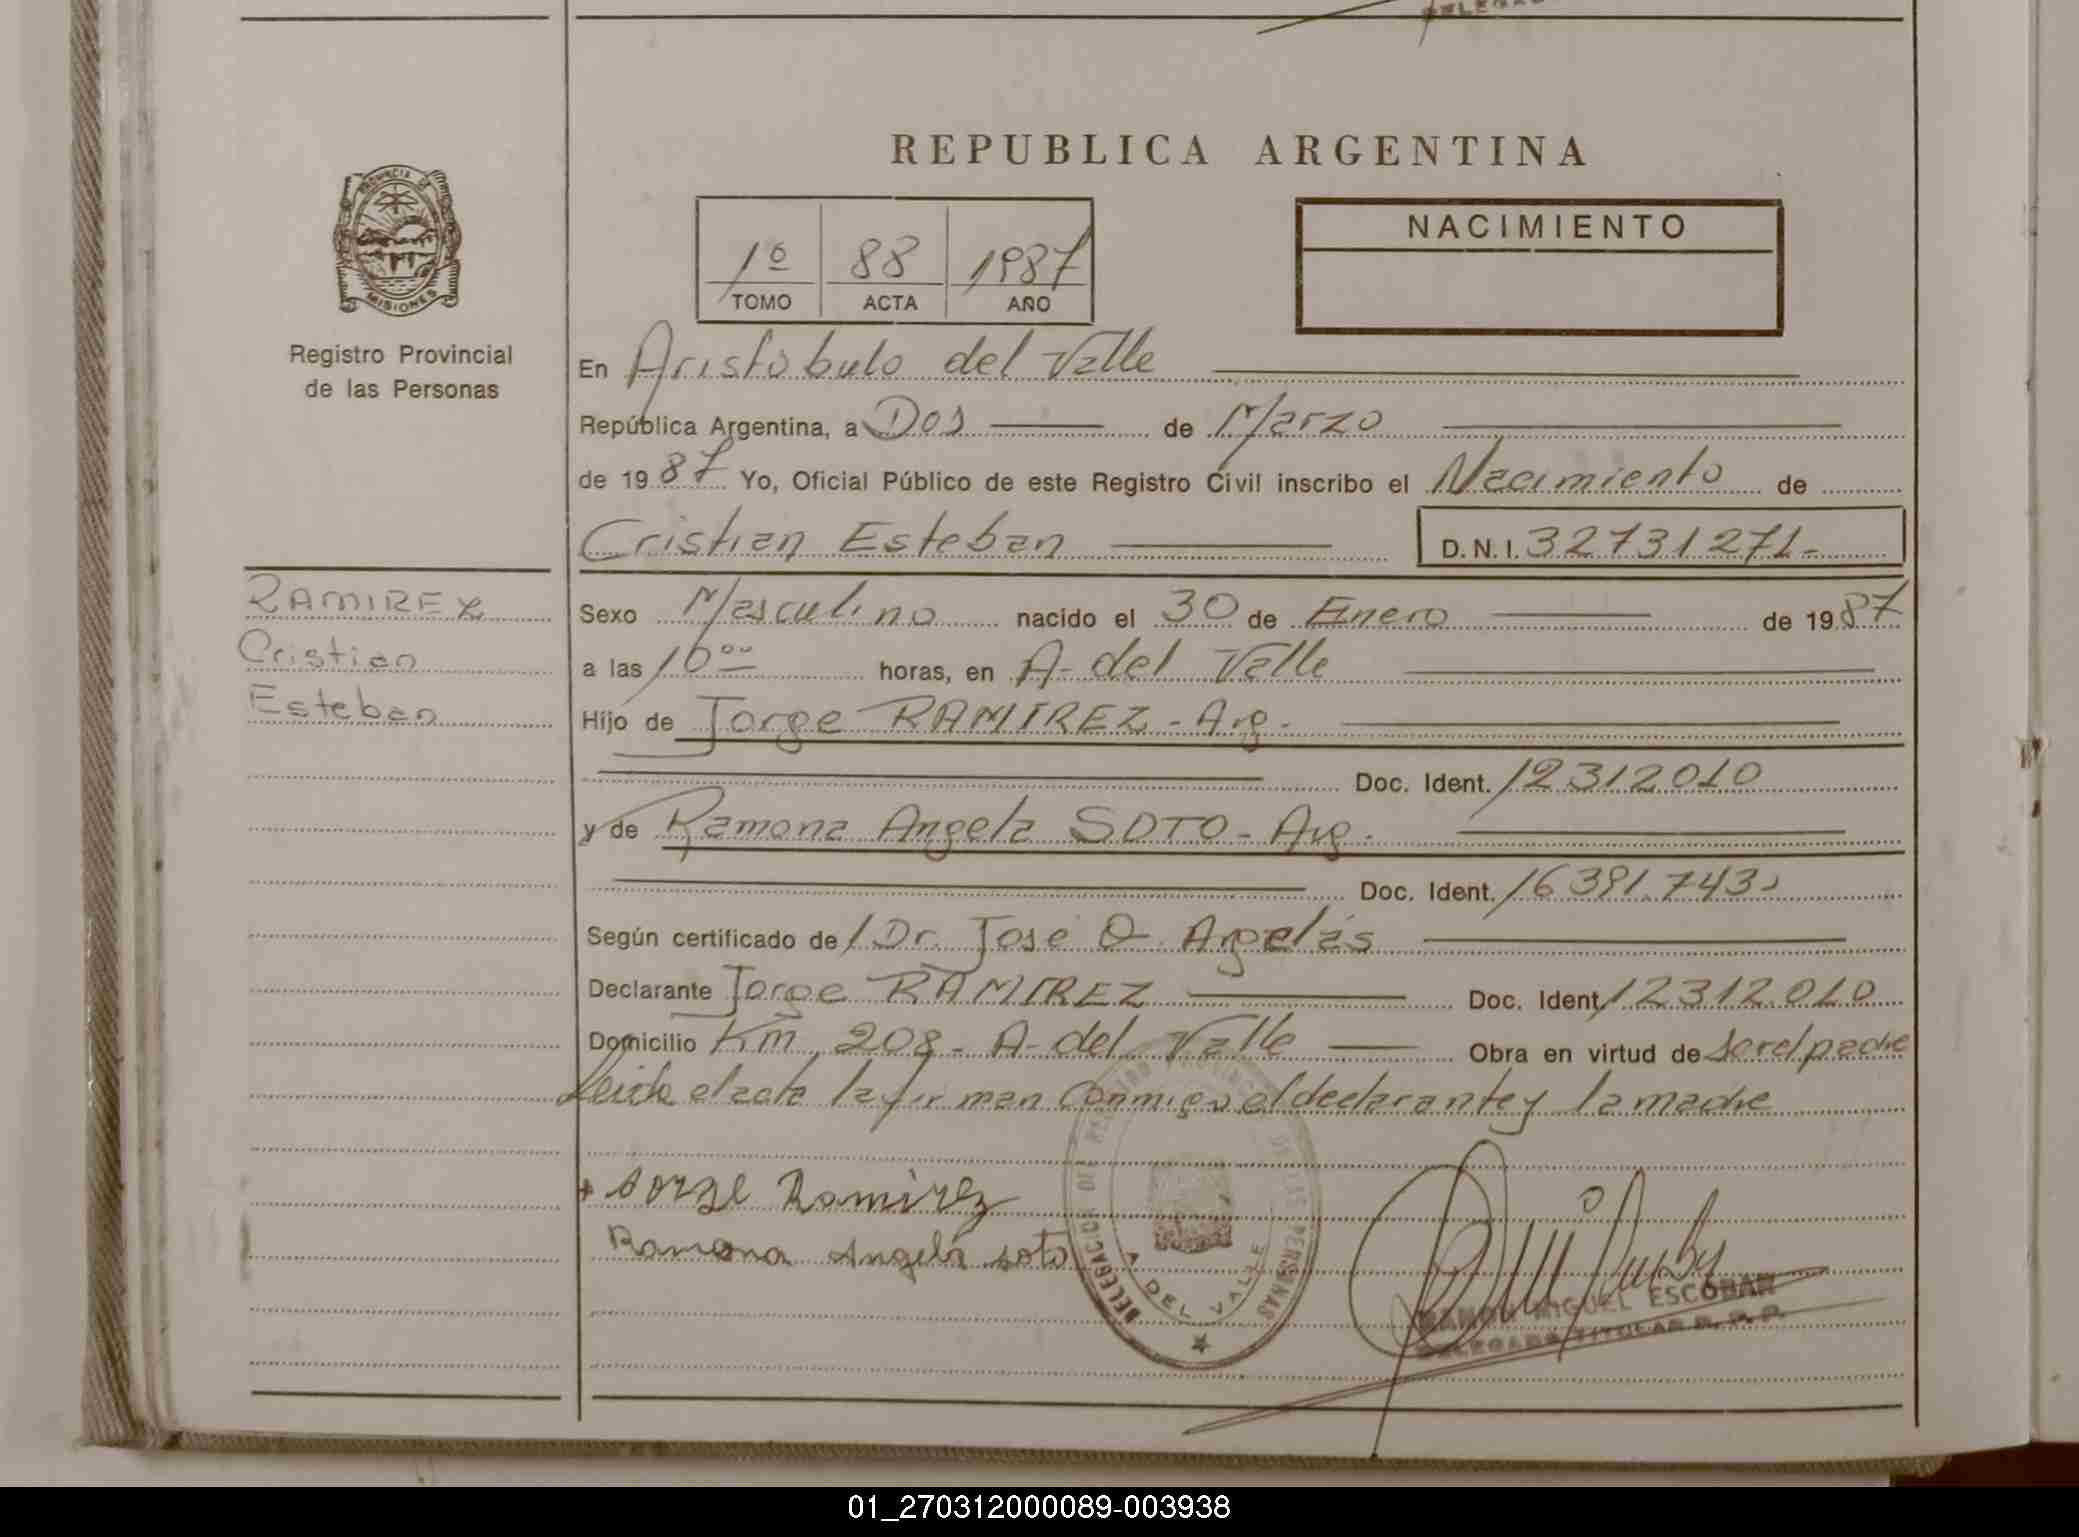 REPUBLICA ARGENTINA
PROVINCIA DE
MISIONES
Registro Provincial
de las Personas
1º 88 1987
TOMO ACTA AÑO
NACIMIENTO
En Aristóbulo del Valle
República Argentina, a Dos de Marzo
de 1987 Yo, Oficial Público de este Registro Civil inscribo el Nacimiento de
Cristian Esteban D.N.I. 32731271.-
RAMIREZ
Cristian
Esteban
Sexo Masculino nacido el 30 de Enero de 1987
a las 10 ºº horas, en A- del Valle
Hijo de Jorge RAMIREZ - Arg.
Doc. Ident. 12312010
y de Ramona Angela SOTO - Arg.
Doc. Ident. 16391.743
Según certificado de Dr. José O. Argelás
Declarante Jorge RAMIREZ Doc. Ident. 12312.010
Domicilio Km 208 - A- del Valle Obra en virtud de ser el padre
Leida el acta la firman conmigo el declarante y la madre
Jorge Ramirez
Ramona Angela Soto
DELEGACION DEL REGISTRO PROVINCIAL DE LAS PERSONAS
A DEL VALLE
RAMON MIGUEL ESCOBAR
DELEGADO TITULAR R. P. P.
01_270312000089-003938